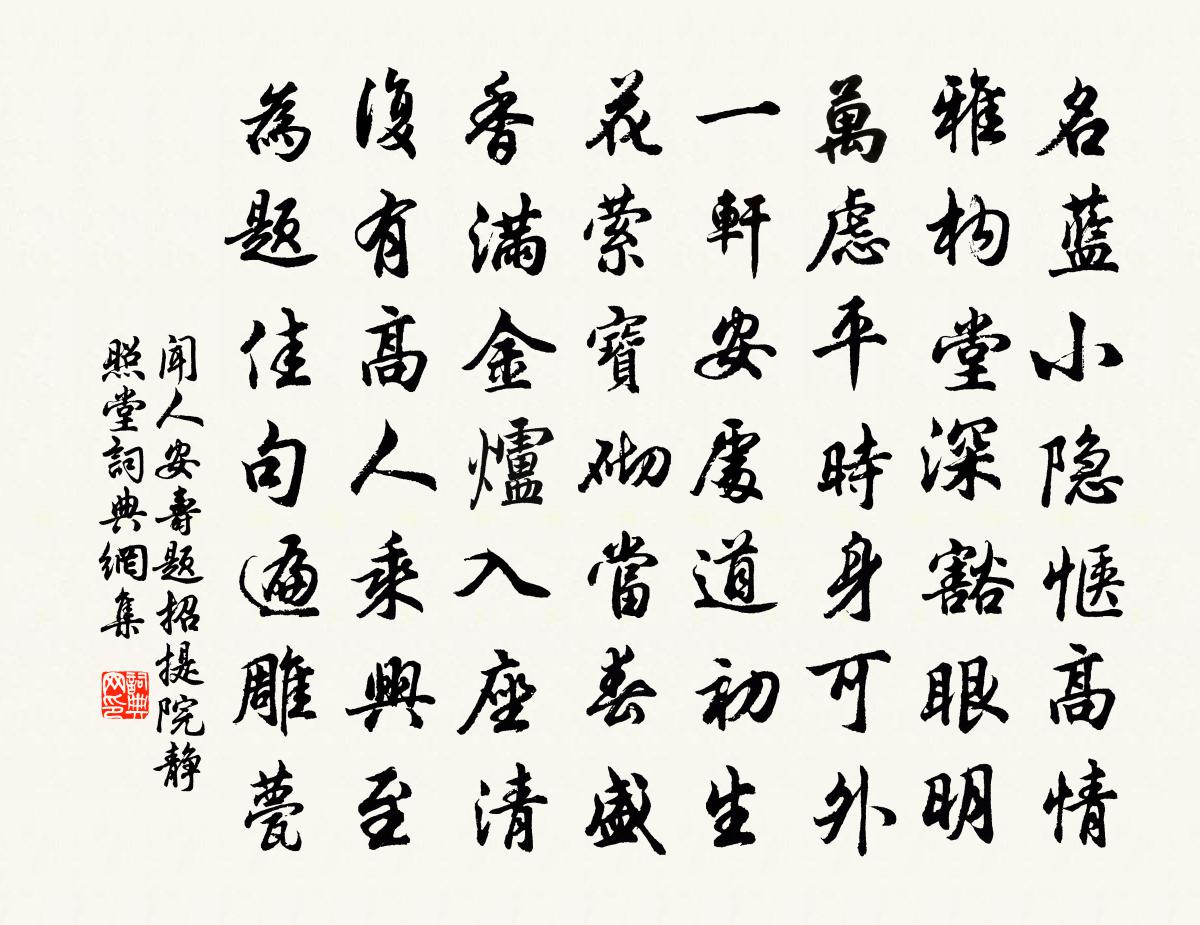 名藍小隐愜高情
雅构堂深豁眼明
萬慮平時身可外
一軒安處道初生
花縈寶砌當春盛
香滿金爐入座清
復有高人乘興至
為题佳句遍雕甍
闻人安壽题招提院静
照堂詞典網集
詞典网印